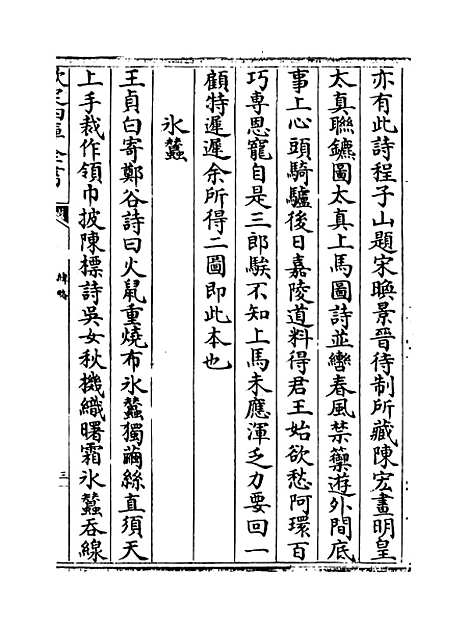 亦有此詩程子山題宋㬇景晉待制所藏陳宏畫明皇
太真聯鑣圖太真上馬圖詩並轡春風禁籞遊外間底
事上心頭騎驢後日嘉陵道料得君王始欲愁阿環百
巧専恩寵自是三郎騃不知上馬未應渾乏力要回一
顧特遲遲余所得二圖即此本也
氷蠶
王貞白寄鄭谷詩曰火鼠重燒布氷蠶獨繭絲直須天
上手裁作領巾披陳標詩吳女秋機織曙霜氷蠶吞線
欽定四庫全書
緯略